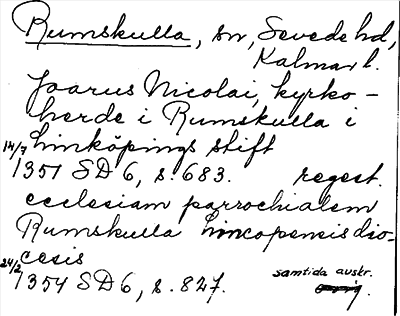 Rumskulla, sn, Sevede hd,
Kalmar l.
Joarus Nicolai, kyrko-
herde i Rumskulla i
Linköpings stift
14/7 1351 SD 6, s. 683. regest.
ecclesiam parrochialem
Rumskulla Lincopensis dio-
cesis
24/2 1354 SD 6, s. 827. samtida avskr.